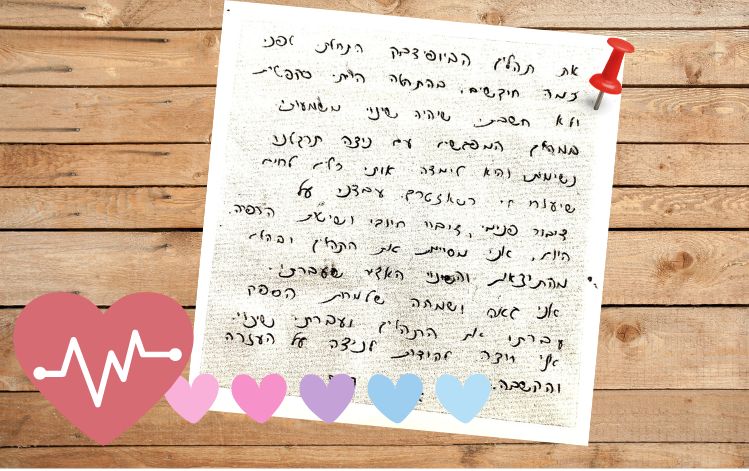 את תהליך הביופידבק התחלתי לפני
כמה חודשים. בהתחלה הייתי סקפטית
ולא חשבתי שיהיה שינוי משמעותי
במהלך המפגשים עם ניצה תרגלנו
נשימות והיא לימדה אותי כלים לחיים
שיעזרו לי עבדנו על
דיבור פנימי, דיבור חיובי ושיטת הרפיה.
היום, אני מסיימת את התהליך ובהלם
מהתוצאות והשינוי האדיר שעברתי.
אני גאה ושמחה שלמרות הספק
עברתי את התהליך ועברתי שינוי.
אני רוצה להודות לניצה על העזרה
וההקשבה.